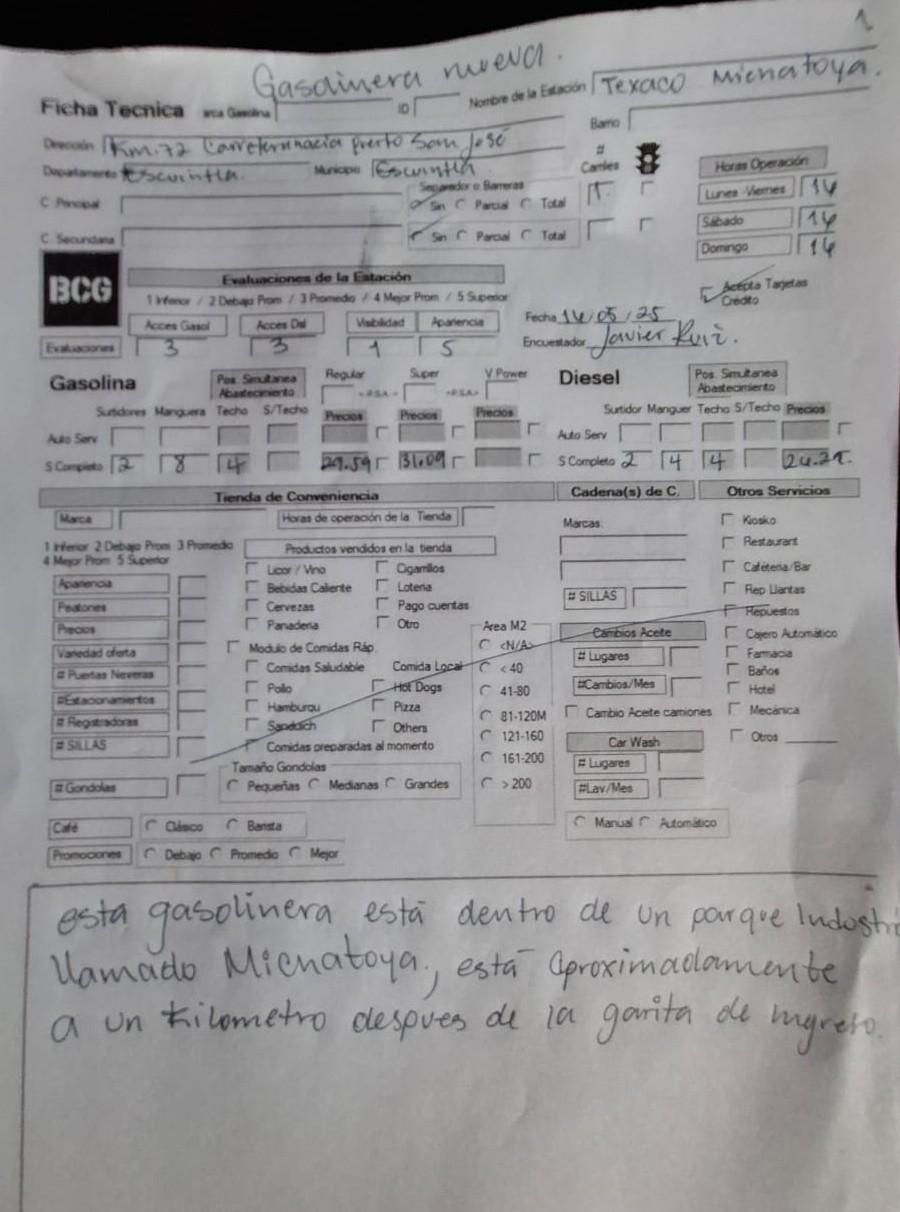 1
Gasolinera nueva.
Ficha Tecnica arca Gasolina ID Nombre de la Estación Texaco Micnatoya.
Dirección Km.72 Carretera puerto San José Barrio
Departamento Escuintla. Municipio Escuintla # Carriles 1. Horas Operación
C Principal Separador o Barreras Sin Parcial Total Lunes -Viernes 14
C. Secundaria Sin Parcial Total Sábado 14
Domingo 14
BCG Evaluaciones de la Estación
1 Inferior / 2 Debajo Prom / 3 Promedio / 4 Mejor Prom / 5 Superior Acepta Tarjetas Crédito
Acces Gasol Acces Dsl Visibilidad Apariencia Fecha 14/05/25
Evaluaciones 3 3 1 5 Encuestador Javier Ruiz.
Gasolina Pos. Simultanea Abastecimiento Regular Super V Power Diesel Pos. Simultanea Abastecimiento
Surtidores Manguera Techo S/Techo Precios Precios Precios Surtidor Manguer Techo S/Techo Precios
Auto Serv Auto Serv
S Completo 2 8 4 29.59 31.09 S Completo 2 4 4
Tienda de Conveniencia Cadena(s) de C. Otros Servicios
Marca Horas de operación de la Tienda Marcas: Kiosko
1 Inferior 2 Debajo Prom 3 Promedio Productos vendidos en la tienda Restaurant
4 Mejor Prom 5 Superior Licor / Vino Cigarrillos Cafeteria/Bar
Apariencia Bebidas Caliente Loteria # SILLAS Rep Llantas
Peatones Cervezas Pago cuentas Repuestos
Precios Panaderia Otro Area M2 Cambios Aceite Cajero Automático
Variedad oferta Modulo de Comidas Ráp. <N/A> # Lugares Farmacia
# Puertas Neveras Comidas Saludable Comida Local < 40 Baños
#Estacionamientos Pollo Hot Dogs 41-80 #Cambios/Mes Hotel
# Registradoras Hamburgu Pizza 81-120M Cambio Aceite camiones Mecánica
# SILLAS Sandwich Others 121-160 Car Wash Otros
Comidas preparadas al momento 161-200 # Lugares
# Gondolas Tamaño Gondolas > 200 #Lav/Mes
Pequeñas Medianas Grandes
Café Clásico Barista Manual Automático
Promociones Debajo Promedio Mejor
esta gasolinera está dentro de un parque Industri
llamado Micnatoya, está aproximadamente
a un Kilometro despues de la garita de ingreso.